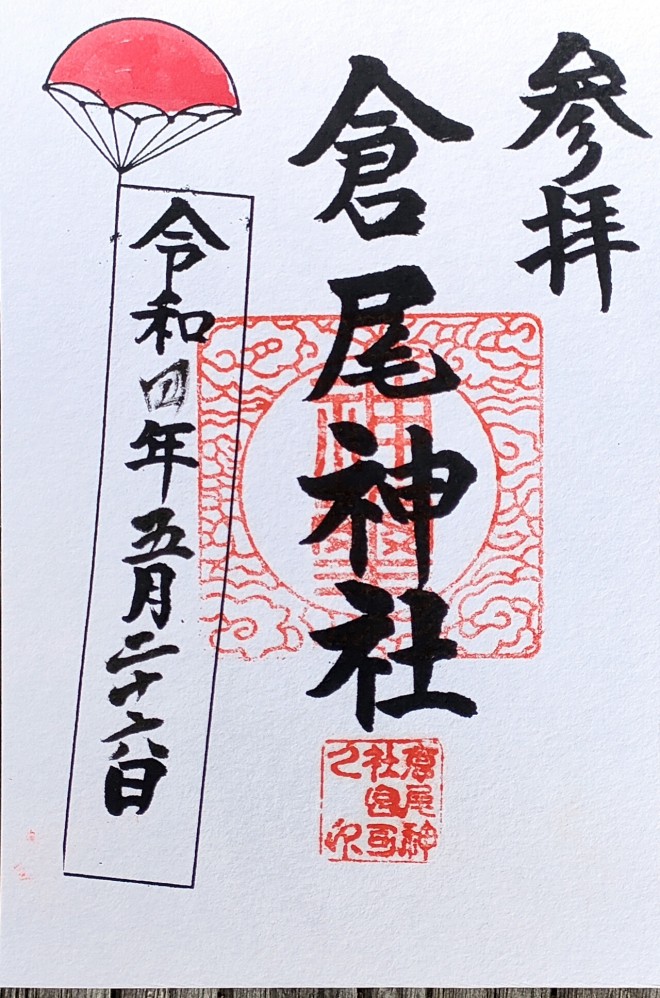 参拝
倉尾神社
令和四年五月二十六日
倉尾神
社宮司
之印